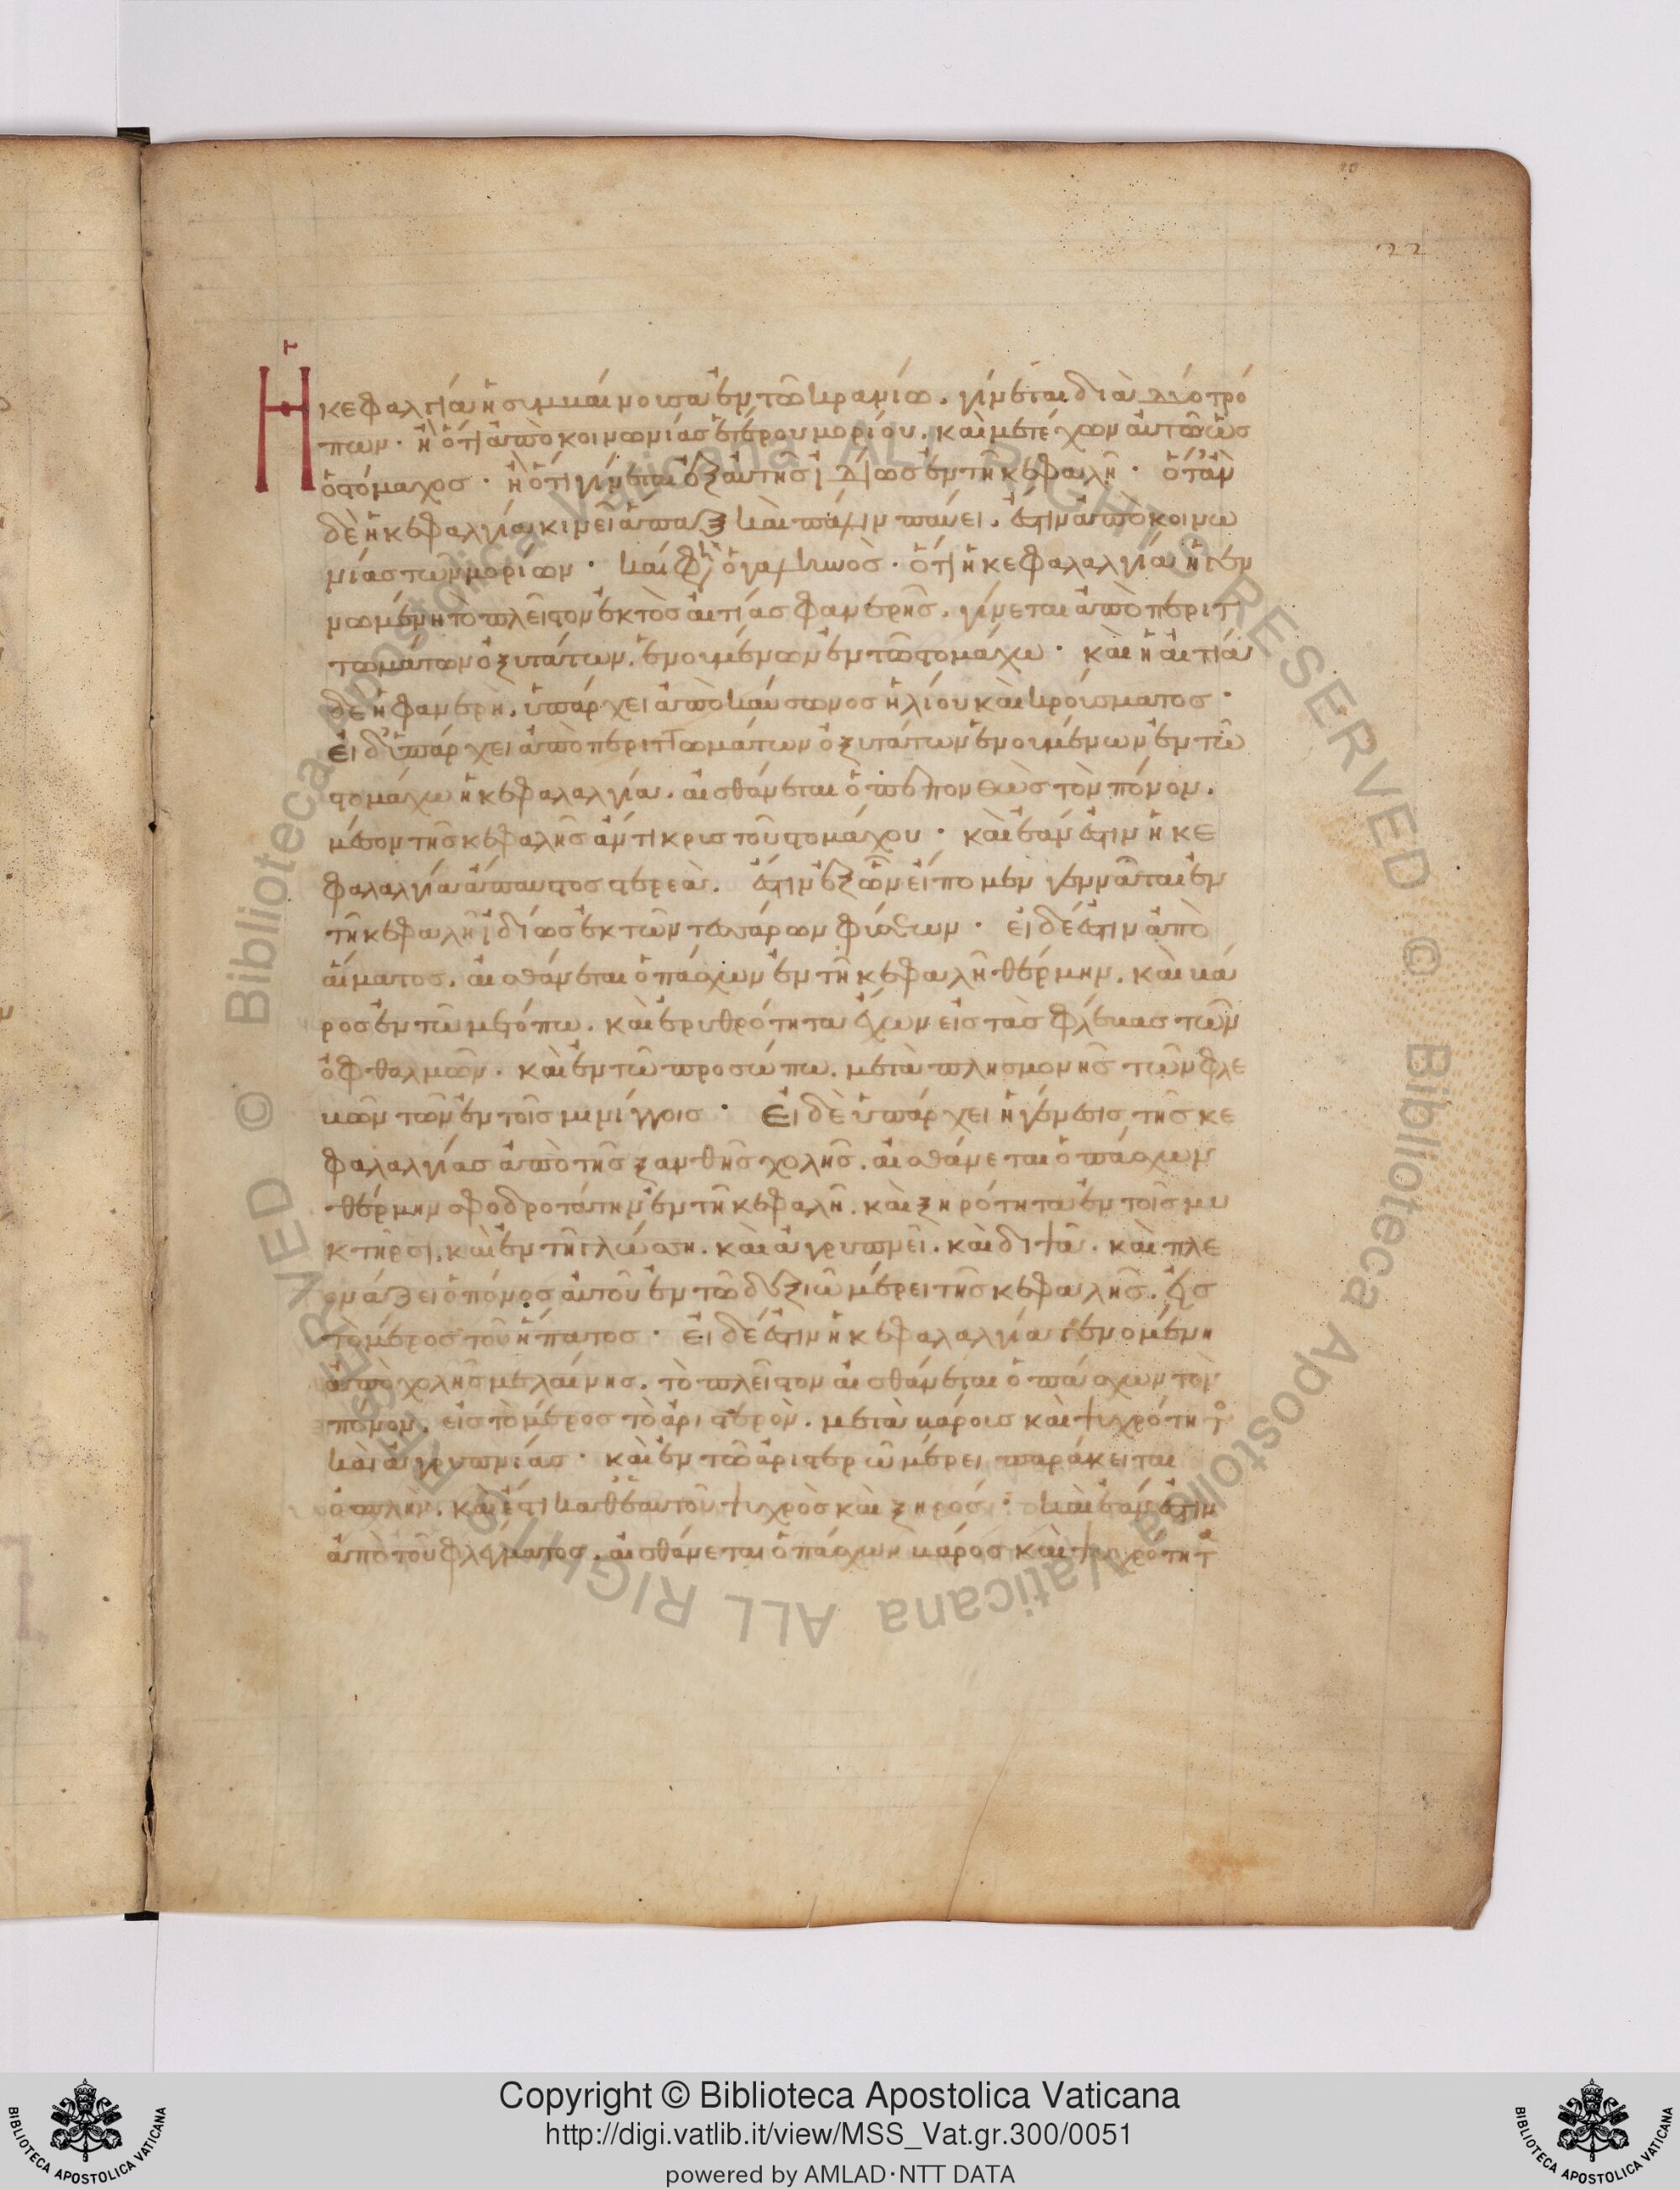 22
Ἡ κεφαλγία ἡ συμβαίνουσα ἐν τῶ κρανίω. γίνεται διὰ δύο τρό
πων· ἢ ὅτι ἀπὸ κοινωνίας ἑτέρου μορίου. καὶ μετέχων αὐτῶ ὡς
ὁ στόμαχος· ἢ ὅτι γίνεται ἐξ αὐτῆς ἰδίως ἐν τῆ κεφαλῆ· ὅτὰν
δὲ ἡ κεφαλγία κινεῖ ἅπαξ καὶ πάλιν παύει. ἔστιν ἀπὸ κοινω
νίας τῶν μορίων· καί φησὶν ὁ γαληνὸς· ὅτι ἡ κεφαλαλγία ἡ γεν
νωμένη τὸ πλεῖστον ἐκτὸς αἰτίας φανερῆς. γίνεται ἀπὸ περιτ
τωμάτων ὀξυτάτων. ἐνουμένων ἐν τῶ στομάχω· καὶ ἡ αἰτία
δὲ ἡ φανερὴ. ὑπάρχει ἀπὸ καύσωνος ἡλίου καὶ κρούσματος·
εἰ δ' ὑπάρχει ἀπὸ περιττωμάτων ὀξυτάτων ἐνουμένων ἐν τῶ
στομάχω ἡ κεφαλαλγία. αἰσθάνεται ὁ πεπονθὼς τὸν πόνον.
μέσον τῆς κεφαλῆς ἀντικρις τοῦ στομάχου· καὶ ἐάν ἐστιν ἡ κε
φαλαλγία ἄπαυστος στερεὰ. ἔστιν ἐξ ὧν εἴπομεν γεννᾶται ἐν
τῆ κεφαλῆ ἰδίως ἐκ τῶν τεσσάρων φύσεων· εἰ δέ ἐστιν ἀπὸ
αἵματος. αἰσθάνεται ὁ πάσχων ἐν τῆ κεφαλῆ θέρμην. καὶ κά
ρος ἐν τῶ μετόπω. καὶ ἐρυθρότητα ἔχων εἰς τὰς φλέβας τῶν
ὀφθαλμῶν. καὶ ἐν τῶ προσώπω. μετὰ πλησμονῆς τῶν φλε
βῶν τῶν ἐν τοῖς μινίγγοις· Εἰ δὲ ὑπάρχει ἡ γέννεσις τῆς κε
φαλαλγίας ἀπὸ τῆς ξανθῆς χολῆς. αἰσθάνεται ὁ πάσχων
θέρμην σφοδροτάτην ἐν τῆ κεφαλῆ. καὶ ξηρότητα ἐν τοῖς μυ
κτῆρσι. καὶ ἐν τῆ γλώσση. καὶ ἀγρυπνεῖ. καὶ διψᾶ. καὶ πλε
ονάζει ὁ πόνος αὐτοῦ ἐν τῶ δεξιῶ μέρει τῆς κεφαλῆς. εἰς
τὸ μέρος τοῦ ἥπατος· Εἰ δέ ἐστιν ἡ κεφαλαλγία γενομένη
ἀπὸ χολῆς μελαίνης. τὸ πλεῖστον αἰσθάνεται ὁ πάσχων τὸν
πόνον. εἰς τὸ μέρος τὸ ἀριστερὸν. μετὰ κάρους καὶ ψυχρότητος
καὶ ἀγρυπνίας· καὶ ἐν τῶ ἀριστερῶ μέρει παράκειται
ὁ σπλὴν. καὶ ἔστι καθ' ἑαυτοῦ ψυχρὸς καὶ ξηρός· καὶ ἐάν ἐστιν
ἀπὸ τοῦ φλέγματος. αἰσθάνεται ὁ πάσχων κάρος καὶ ψυχρότητα
Copyright © Biblioteca Apostolica Vaticana
http://digi.vatlib.it/view/MSS_Vat.gr.300/0051
powered by AMLAD·NTT DATA
BIBLIOTECA APOSTOLICA VATICANA
BIBLIOTECA APOSTOLICA VATICANA
© Biblioteca Apostolica Vaticana ALL RIGHTS RESERVED © Biblioteca Apostolica Vaticana ALL RIGHTS RESERVED